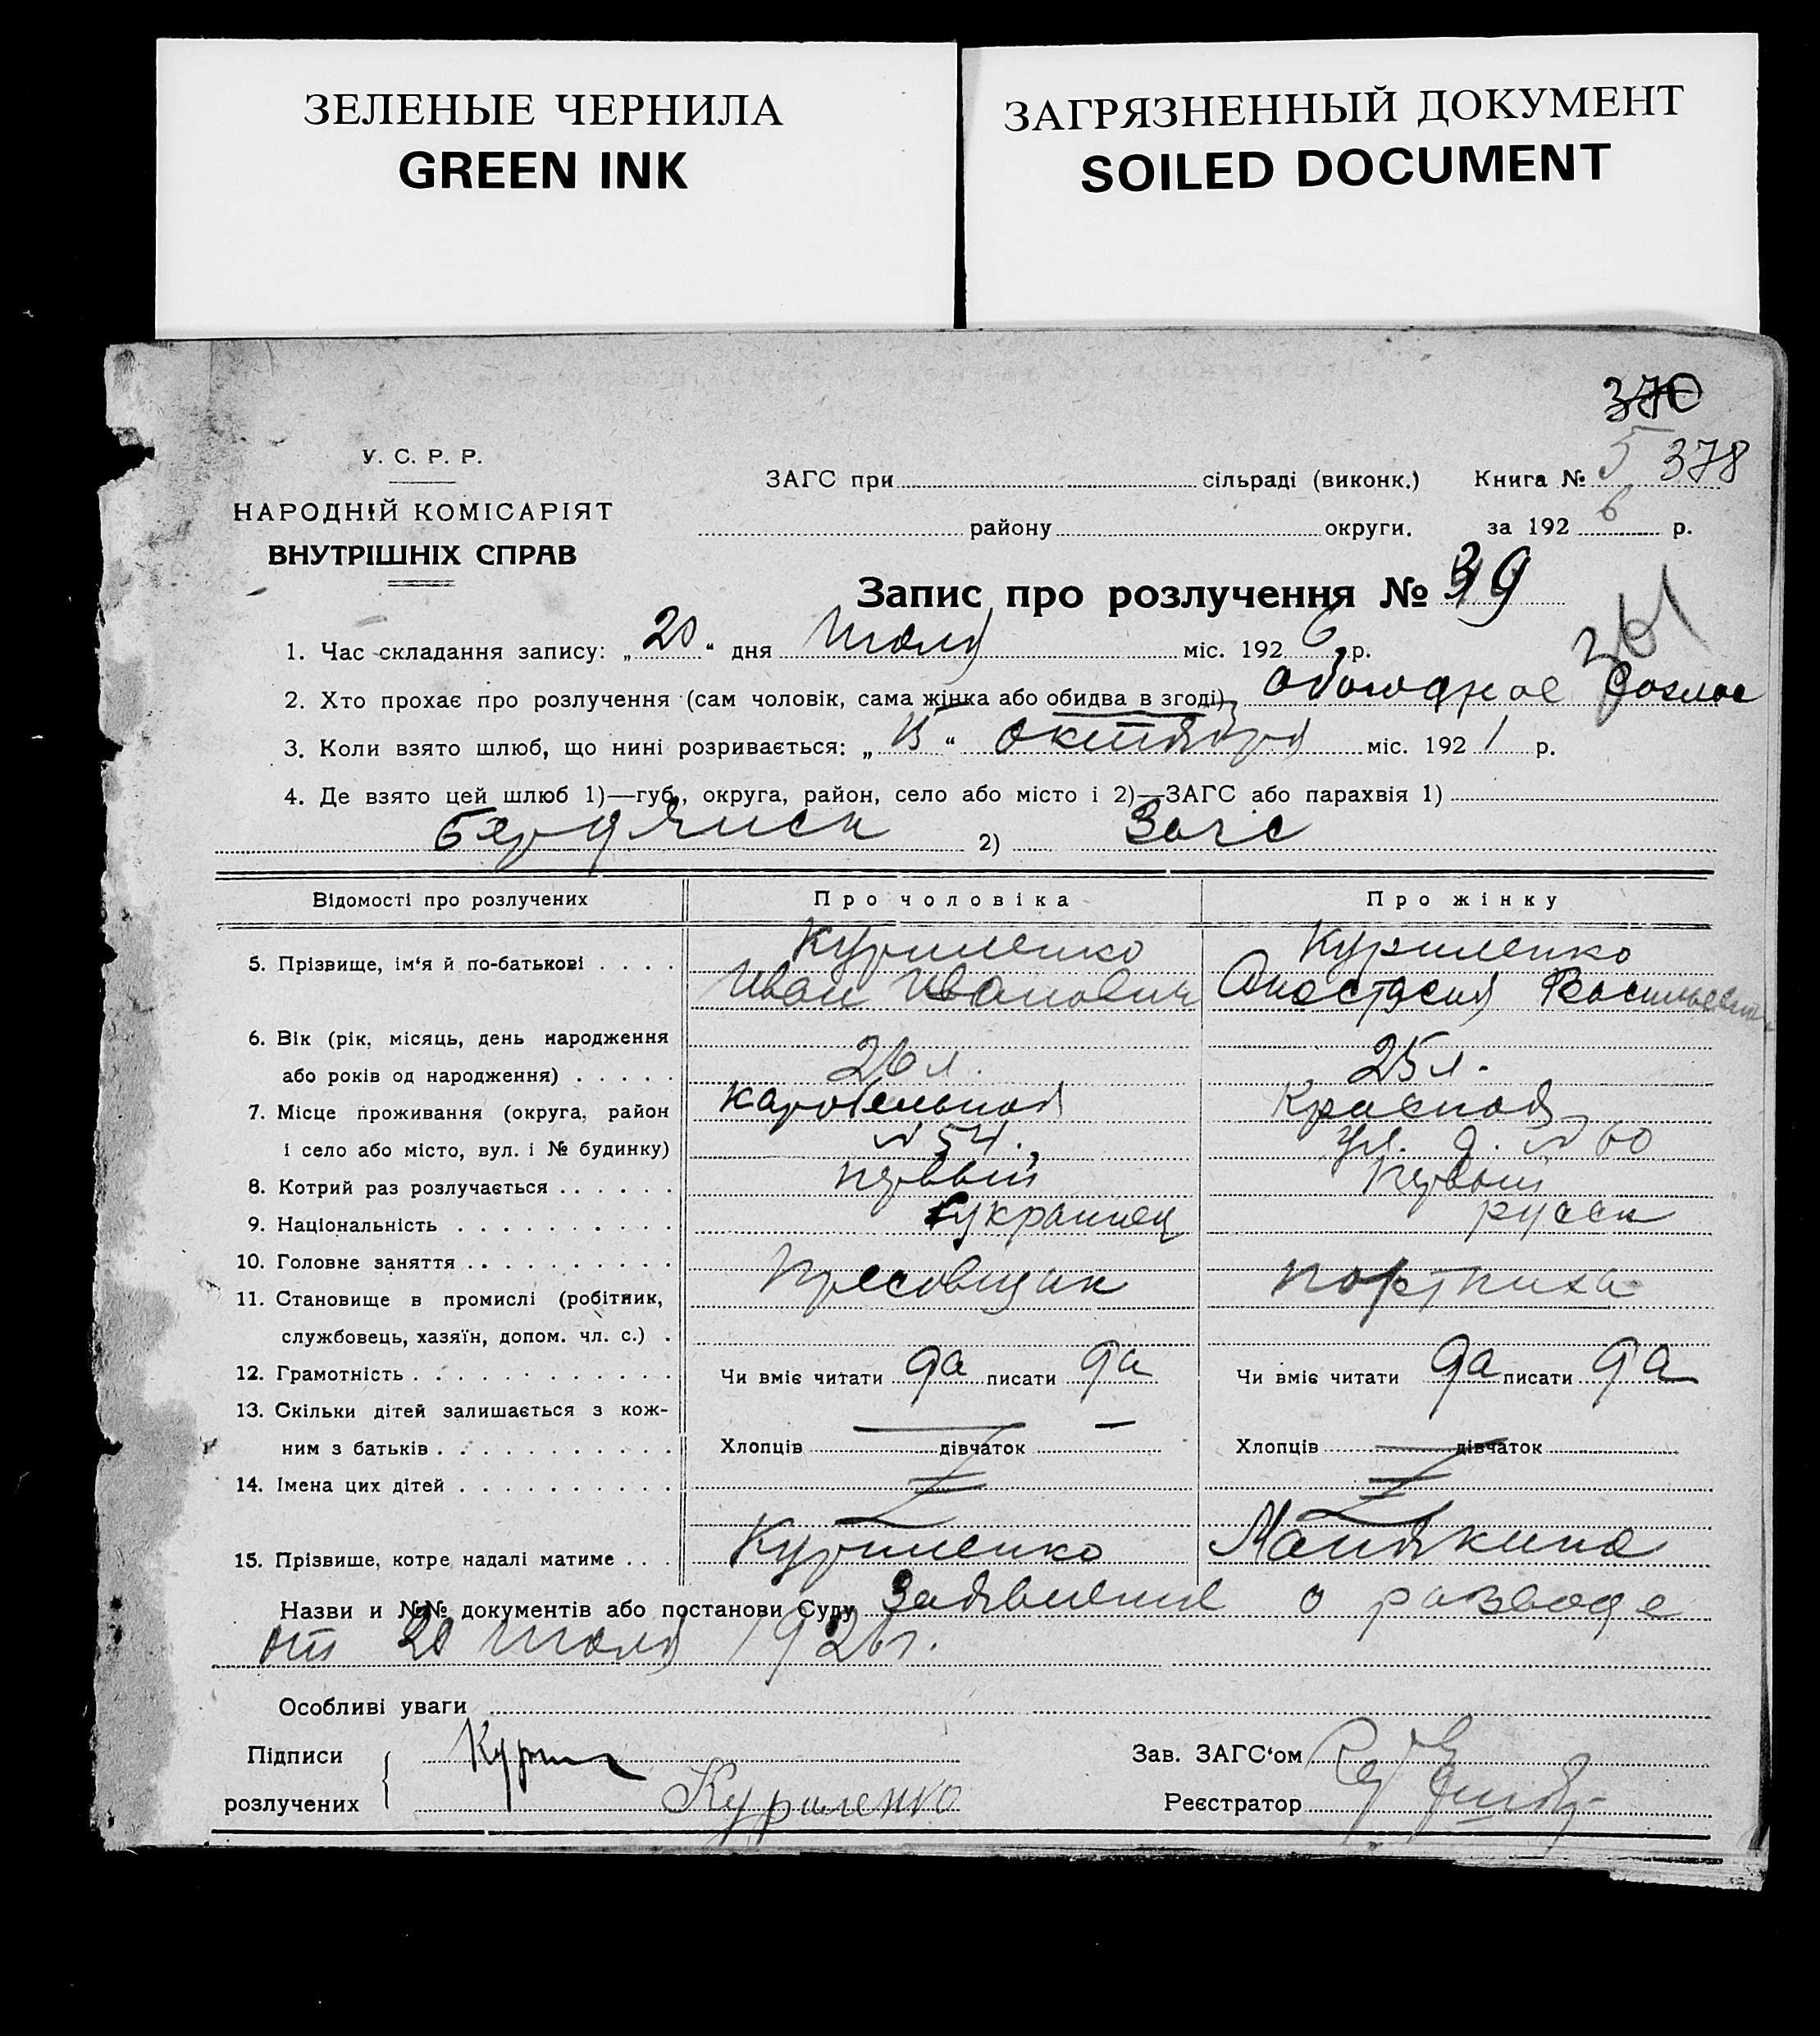 ЗЕЛЕНЫЕ ЧЕРНИЛА
GREEN INK
ЗАГРЯЗНЕННЫЙ ДОКУМЕНТ
SOILED DOCUMENT
370
У. С. Р. Р.
НАРОДНІЙ КОМІСАРІЯТ
ВНУТРІШНІХ СПРАВ
ЗАГС при сільраді (виконк.) Книга № 5 378
району округи. за 192 6 р.
Запис про розлучення № 39
1. Час складання запису: „ 20 “ дня Июля міс. 192 6 р.
2. Хто прохає про розлучення (сам чоловік, сама жінка або обидва в згоді)
3. Коли взято шлюб, що нині розривається: „ 15 “ октября міс. 192 1 р.
4. Де взято цей шлюб 1)—губ., округа, район, село або місто і 2)—ЗАГС або парахвія 1)
Бердянск 2) Загс
Відомості про розлучених Про чоловіка Про жінку
5. Прізвище, ім‘я й по-батькові Куриленко Куриленко
Иван Иванович Анастасия Васильевна
6. Вік (рік, місяць, день народження
або років од народження) 26 л. 25 л.
7. Місце проживання (округа, район Карабельная Красная
і село або місто, вул. і № будинку) № 54. ул. д. № 60
8. Котрий раз розлучається первый Первый
9. Національність украинец русск
10. Головне заняття Пресовщик портниха
11. Становище в промислі (робітник,
службовець, хазяїн, допом. чл. с.)
12. Грамотність Чи вміє читати да писати да Чи вміє читати да писати да
13. Скільки дітей залишається з кож-
ним з батьків Хлопців — дівчаток — Хлопців — дівчаток
14. Імена цих дітей
15. Прізвище, котре надалі матиме Куриленко
Назви и №№ документів або постанови Суду Заявление о разводе
от 20 Июля 1926 г.
Особливі уваги
Підписи
розлучених Куриленко
Зав. ЗАГС‘ом
Реєстратор